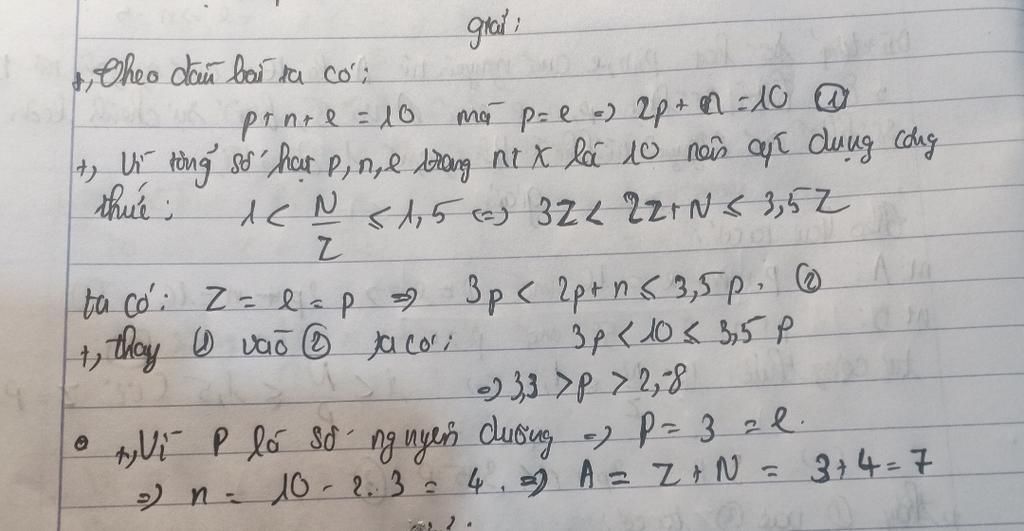 giải:
+, Theo đầu bài ta có:
p+n+e = 10 mà p=e => 2p+n=10 ①
+, Vì tổng số hạt p,n,e trong nt X là 10 nên dụng công
thức: 1 < N/Z ≤ 1,5 <=> 3Z < 2Z+N ≤ 3,5Z
ta có: Z = e = p => 3p < 2p+n ≤ 3,5p. ②
+, thay ① vào ② ta có: 3p < 10 ≤ 3,5 p
=> 3,3 > p > 2,8
+, Vì P là số nguyên dương => P = 3 = e.
=> n = 10 - 2.3 = 4. => A = Z + N = 3+4=7